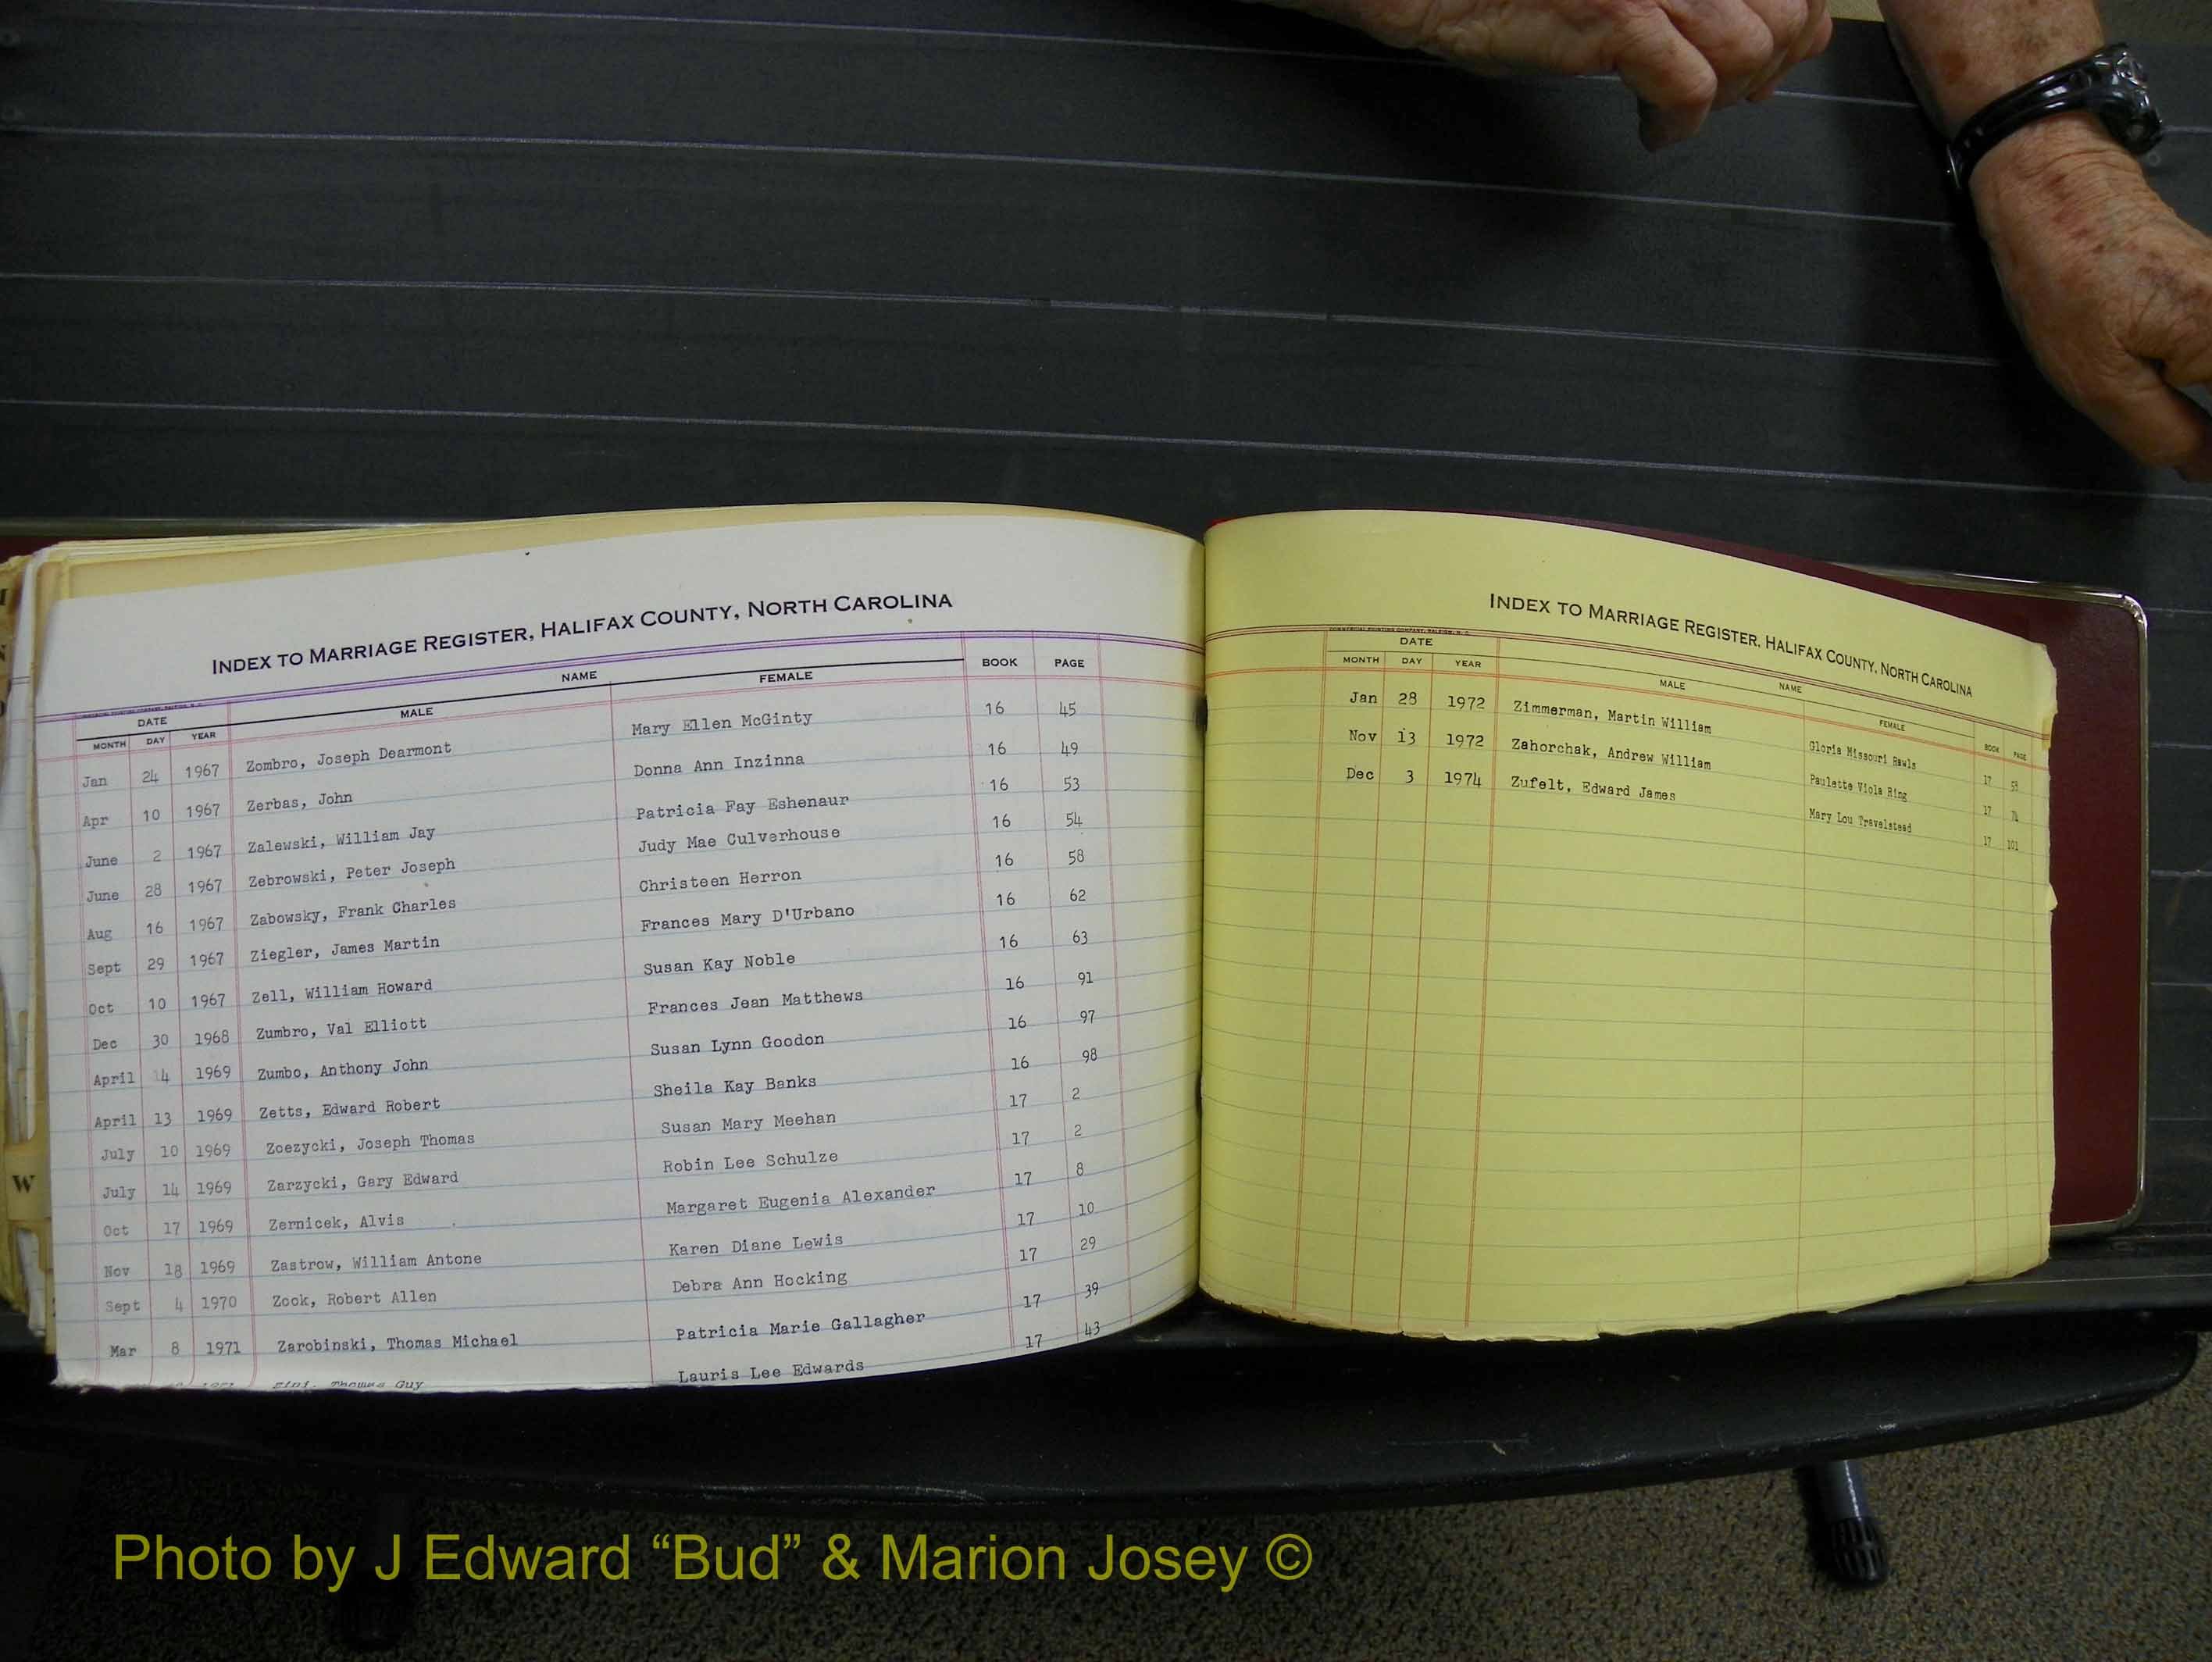 INDEX TO MARRIAGE REGISTER, HALIFAX COUNTY, NORTH CAROLINA
DATE NAME BOOK PAGE
MONTH DAY YEAR MALE FEMALE
Jan 24 1967 Zombro, Joseph Dearmont Mary Ellen McGinty 16 45
Apr 10 1967 Zerbas, John Donna Ann Inzinna 16 49
June 2 1967 Zalewski, William Jay Patricia Fay Eshenaur 16 53
June 28 1967 Zebrowski, Peter Joseph Judy Mae Culverhouse 16 54
Aug 16 1967 Zabowsky, Frank Charles Christeen Herron 16 58
Sept 29 1967 Ziegler, James Martin Frances Mary D'Urbano 16 62
Oct 10 1967 Zell, William Howard Susan Kay Noble 16 63
Dec 30 1968 Zumbro, Val Elliott Frances Jean Matthews 16 91
April 4 1969 Zumbo, Anthony John Susan Lynn Goodon 16 97
April 13 1969 Zetts, Edward Robert Sheila Kay Banks 16 98
July 10 1969 Zoezycki, Joseph Thomas Susan Mary Meehan 17 2
July 14 1969 Zarzycki, Gary Edward Robin Lee Schulze 17 2
Oct 17 1969 Zernicek, Alvis Margaret Eugenia Alexander 17 8
Nov 18 1969 Zastrow, William Antone Karen Diane Lewis 17 10
Sept 4 1970 Zook, Robert Allen Debra Ann Hocking 17 29
Mar 8 1971 Zarobinski, Thomas Michael Patricia Marie Gallagher 17 39
Thomas Guy Lauris Lee Edwards 17 43
W
INDEX TO MARRIAGE REGISTER, HALIFAX COUNTY, NORTH CAROLINA
DATE NAME
MONTH DAY YEAR MALE FEMALE BOOK PAGE
Jan 28 1972 Zimmerman, Martin William Gloria Missouri Rawls 17 58
Nov 13 1972 Zahorchak, Andrew William Paulette Viola Ring 17
Dec 3 1974 Zufelt, Edward James Mary Lou Travelstead 17 101
Photo by J Edward “Bud” & Marion Josey ©